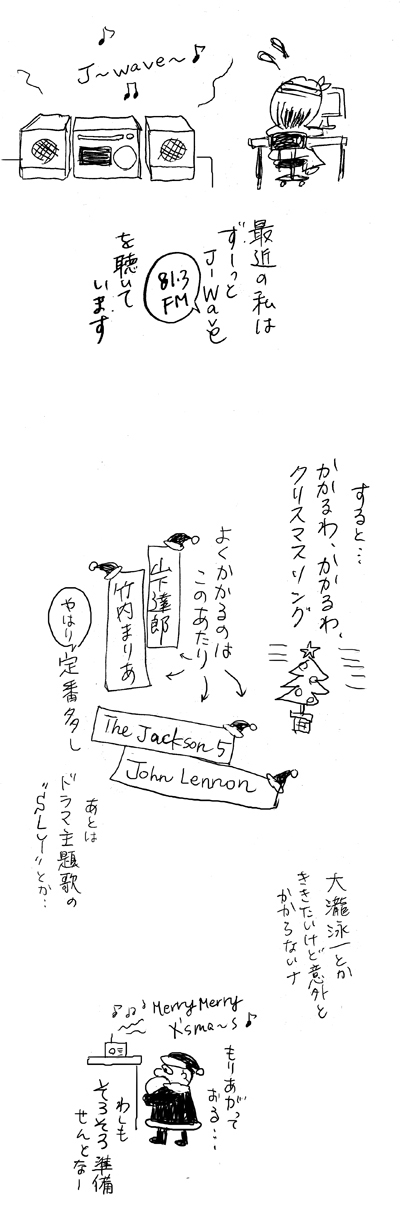 J~wave~
最近の私は
ずーっと
J-Waveを
81.3
FM
を聴いて
います
すると…
かかるわ、かかるわ、
クリスマスソング
よくかかるのは
このあたり
山下達郎
竹内まりあ
The Jackson 5
John Lennon
やはり定番多し
あとは
ドラマ主題歌の
"SLY"とか…
大瀧泳一とか
ききたいけど意外と
かからないナ
Merry Merry
X'sma~s
もりあがって
おる…
わしも
そろそろ準備
せんとなー